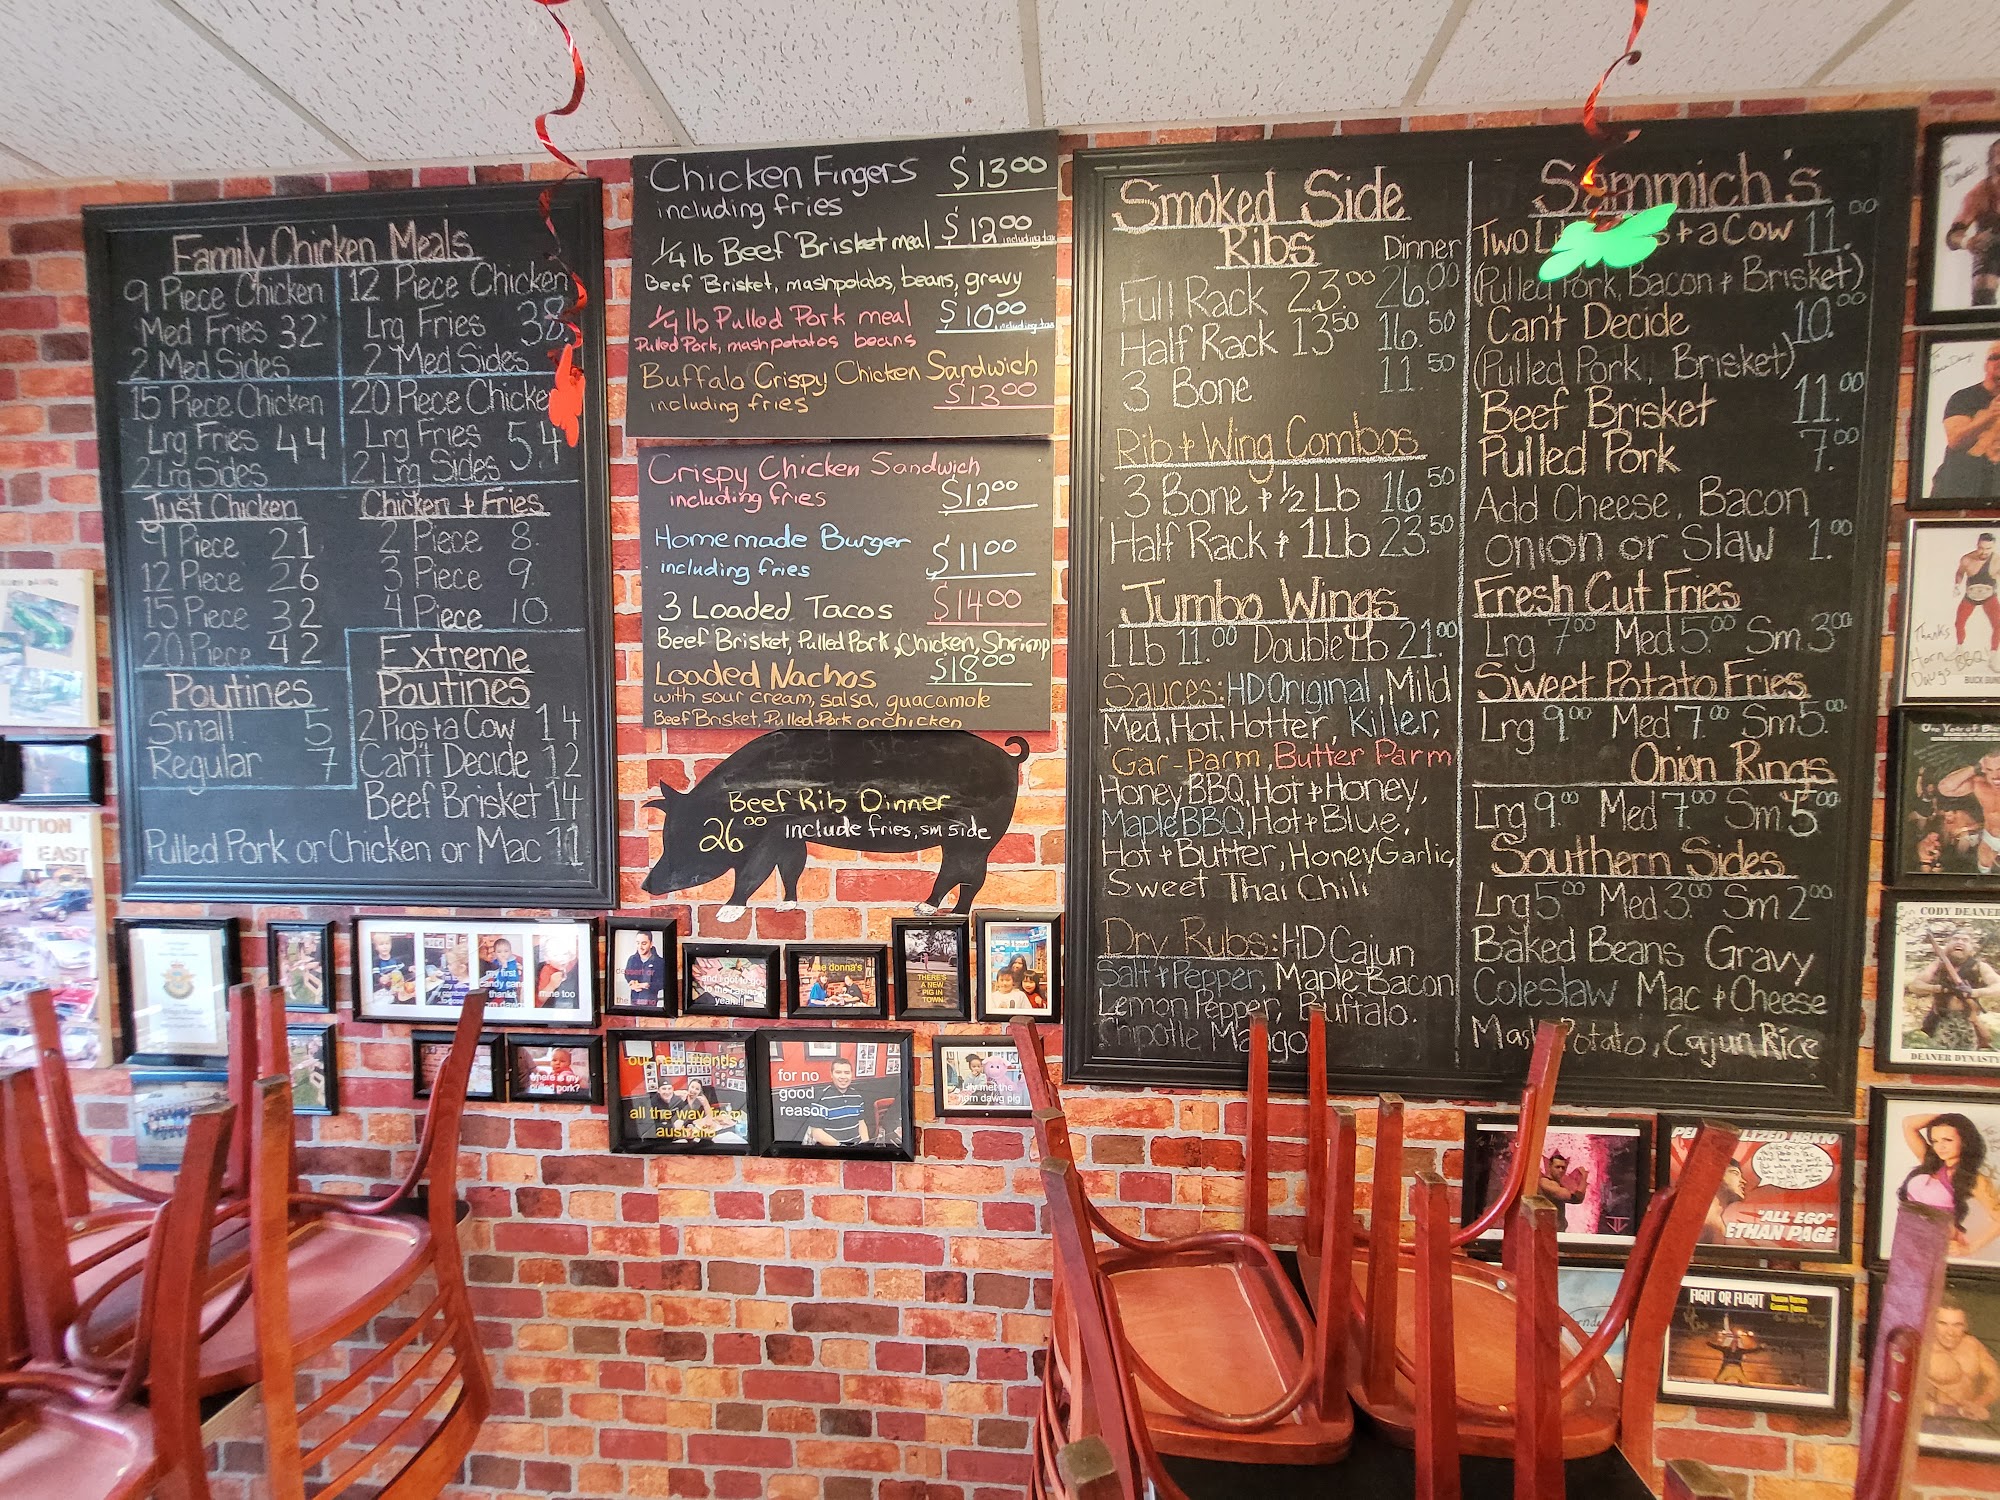 Family Chicken Meals
9 Piece Chicken
Med Fries 32
2 Med Sides
12 Piece Chicken
Lrg Fries 38.
2 Med Sides
15 Piece Chicken
Lrg Fries 44
2 Lrg Sides
20 Piece Chicken
Lrg Fries 54
2 Lrg Sides
Just Chicken
9 Piece 21
12 Piece 26
15 Piece 32
20 Piece 42
Chicken + Fries
2 Piece 8.
3 Piece 9.
4 Piece 10.
Poutines
Small 5
Regular 7
Extreme
Poutines
2 Pigs + a Cow 14
Can't Decide 12
Beef Brisket 14
Pulled Pork or Chicken or Mac 11
Chicken Fingers $13.00
including fries
1/4 lb Beef Brisket meal $12.00 including tax
Beef Brisket, mashpotatos, beans, gravy
1/4 lb Pulled Pork meal $10.00 including tax
Pulled Pork, mashpotatos beans
Buffalo Crispy Chicken Sandwich
including fries $13.00
Crispy Chicken Sandwich
including fries $12.00
Homemade Burger $11.00
including fries
3 Loaded Tacos $14.00
Beef Brisket, Pulled Pork, Chicken, Shrimp
Loaded Nachos $18.00
with sour cream, salsa, guacamole
Beef Brisket, Pulled Pork or chicken
Beef Rib Dinner
26.00 include fries, sm side
Smoked Side
Ribs Dinner
Full Rack 23.00 26.00
Half Rack 13.50 16.50
3 Bone 11.50
Rib + Wing Combos
3 Bone + 1/2 Lb 16.50
Half Rack + 1 Lb 23.50
Jumbo Wings
1 Lb 11.00 Double Lb 21.00
Sauces: HD Original, Mild
Med, Hot, Hotter, Killer,
Gar-Parm, Butter Parm
Honey BBQ, Hot + Honey,
Maple BBQ, Hot + Blue,
Hot + Butter, Honey Garlic,
Sweet Thai Chili
Dry Rubs: HD Cajun
Salt + Pepper, Maple Bacon
Lemon Pepper, Buffalo.
Chipotle Mango
Sammich's
Two + a Cow 11.00
(Pulled Pork, Bacon + Brisket)
Can't Decide 10.00
(Pulled Pork, Brisket)
Beef Brisket 11.00
Pulled Pork 7.00
Add Cheese, Bacon
onion or Slaw 1.00
Fresh Cut Fries
Lrg 7.00 Med 5.00 Sm 3.00
Sweet Potato Fries
Lrg 9.00 Med 7.00 Sm 5.00
Onion Rings
Lrg 9.00 Med 7.00 Sm 5.00
Southern Sides
Lrg 5.00 Med 3.00 Sm 2.00
Baked Beans Gravy
Coleslaw Mac + Cheese
Mash Potato, Cajun Rice
LUTION
EAST
my first
candy cane
thanks
mine too
dessert or
and i got to go
to the
yeah!!!
the donna's
THERE'S
A NEW
PIG IN
TOWN
where is my
pulled pork?
our new friends
all the way from
australia
for no
good
reason
lily met the
horn dawg pig
Thanks
Horn
Dawgs BBQ
BUCK GUN
CODY DEANER
DEANER DYNASTY
"ALL EGO"
ETHAN PAGE
FIGHT OR FLIGHT